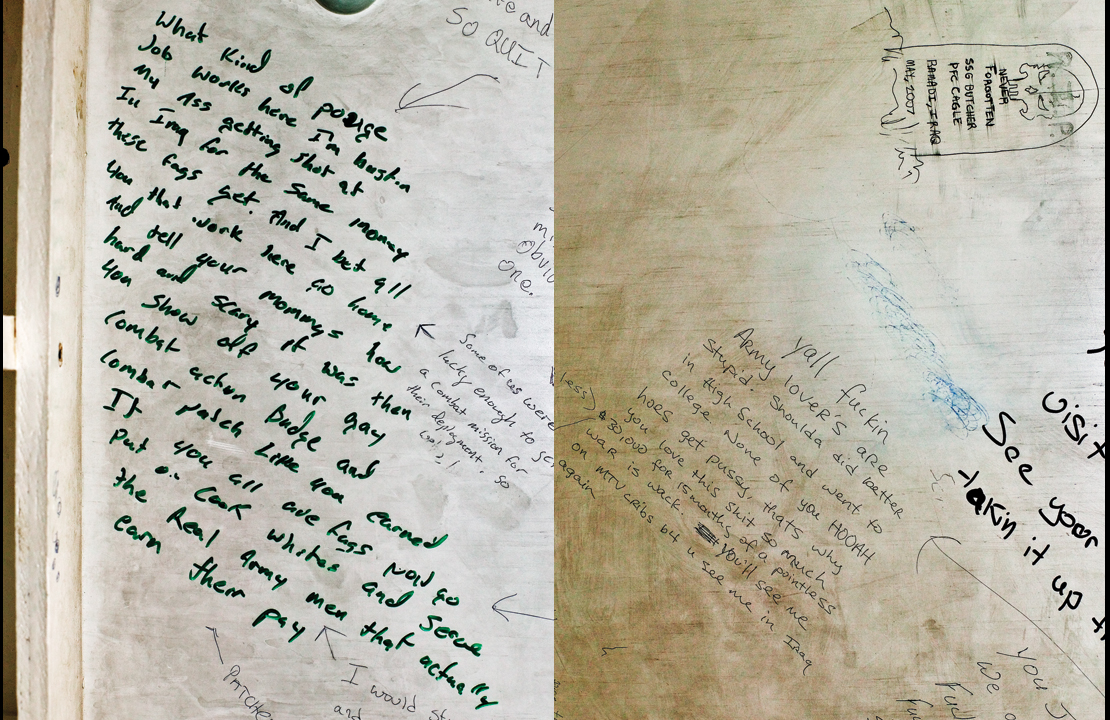 What Kind of pouge
Job works here I'm bustin
My Ass getting shot at
In Iraq for the same money
these fags get. And I bet all
you that work here go home
And tell your mommys how
hard and scary it was then
you show off your gay
combat action Badge and
combat patch Like you earned
It you all are fags now go
put on cook whites and serve
the Real Army men that actually
earn their pay
ve and
SO QUIT
Obvio
one.
Some of us were
lucky enough to
a combat mission for
their deployment. So
PATCHE
I would st
and
NEVER
FORGOTTEN
SSG BUTCHER
PFC CAGLE
RAMADI, IRAQ
MAY, 2007
R.I.P.
yall fuckin
Army lover's are
stupid. Shoulda did better
in High School and went to
college. None of you HOOAH
hoes get pussy, thats why
you love this shit so much
$30,000 for 15 months of a pointless
war is wack. You'll see me
on MTV cribs b4 u see me in Iraq
again
less)
visit
See your
takin it up
you
We
Fuc